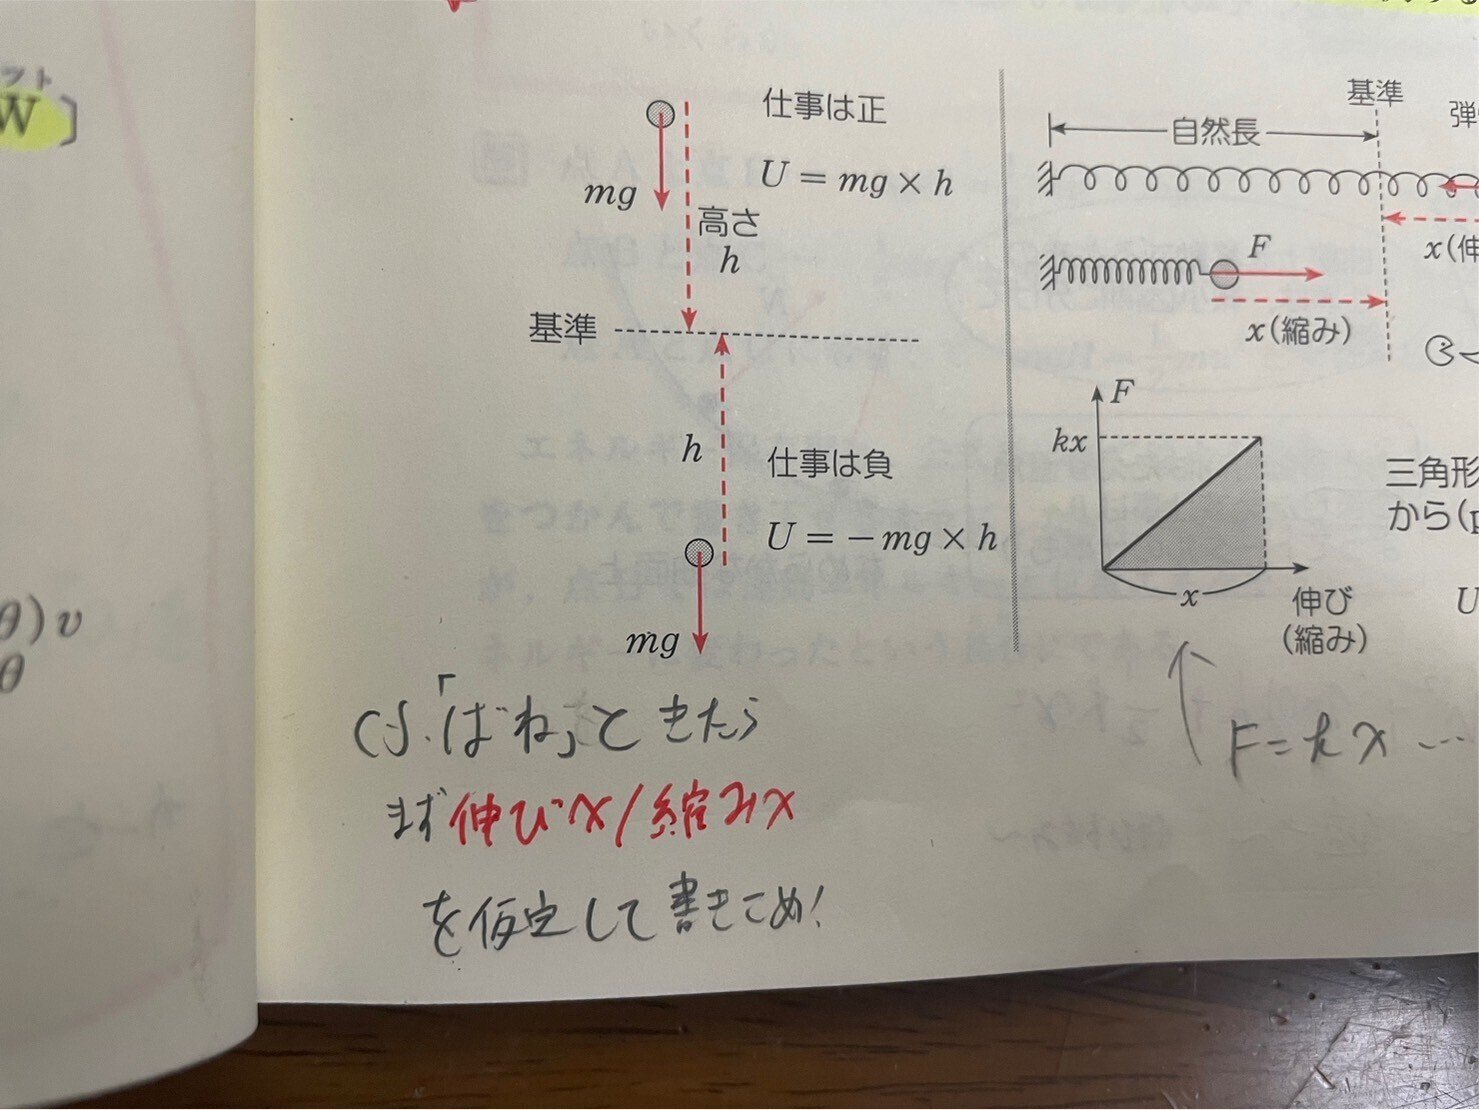 フト
W〕
θ)v
θ
仕事は正
U = mg × h
mg
高さ
h
基準
h
仕事は負
U = − mg × h
mg
基準
自然長
F
x(伸
x(縮み)
F
kx
三角形
から(
x
伸び
(縮み)
U
F=kx …
「ばね」ときたら
まず伸びx/縮みx
を仮定して書きこめ!